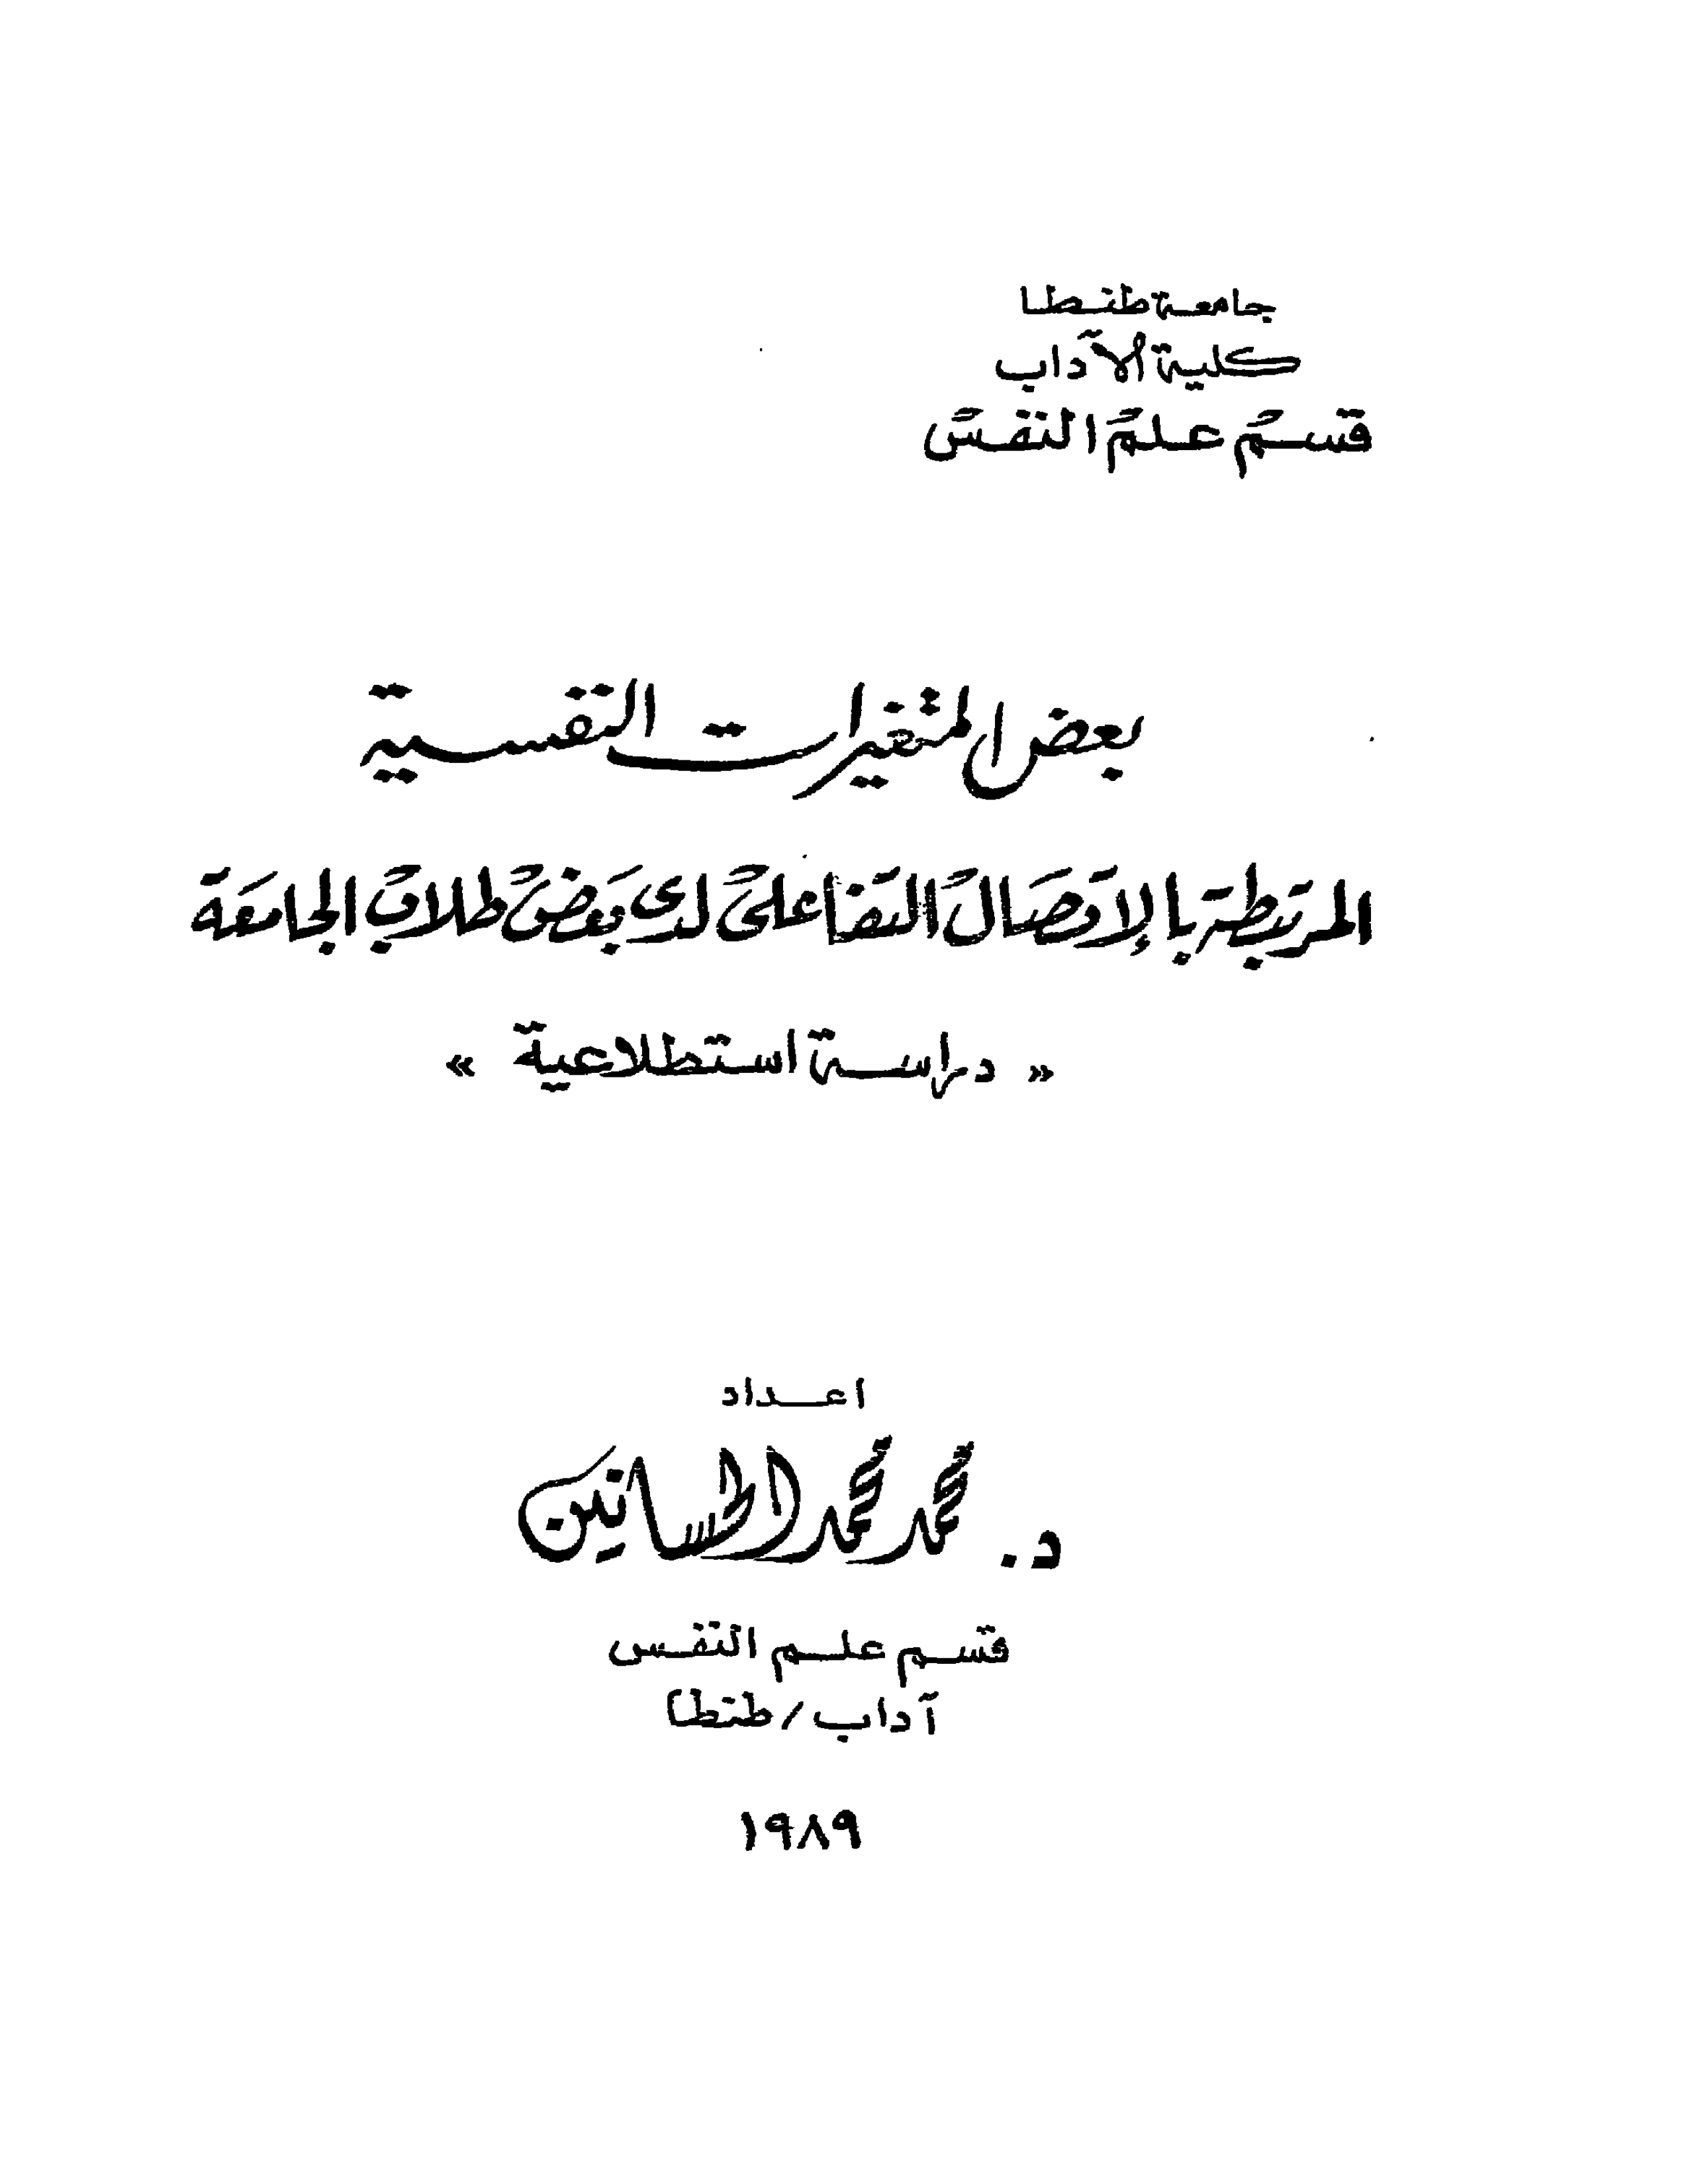 جامعة طنطا
كلية الآداب
قسم علم النفس
بعض المتغيرات النفسية
المرتبطة بالإتصال التفاعلى لدى بعض طلاب الجامعة
« دراسة استطلاعية »
اعداد
د. محمد محمد الحسانين
قسم علم النفس
آداب / طنطا
١٩٨٩